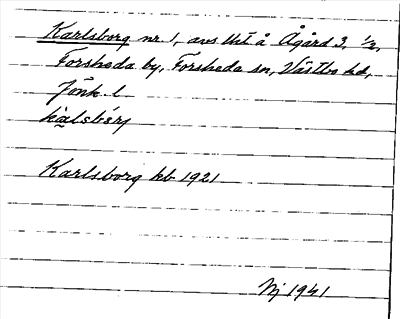 Karlsborg nr 1, avs litt å Ågård 3, ½,
Forsheda by, Forsheda sn, Västbo hd,
Jönk. l
kàlsbórj
Karlsborg kb 1921
Nj 1941